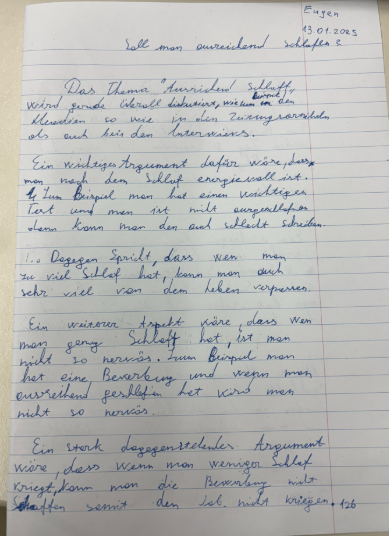 Eugen
13.01.2023
Soll man ausreichend schlafen?
Das Thema "Ausreichend Schlaff"
wird gerade überall diskutiert, wie zum Beispiel in den
Menschen so wie in den Zeitungsartikeln
als auch bei den Interwiens.
Ein wichtiges Argument dafür wäre, dass
man nach dem Schlaf energievoll ist.
Zum Beispiel man hat einen wichtigen
Test und man ist nicht ausgeschlafen
dann kann man den auch schlecht schreiben.
Dagegen Spricht, dass wen man
zu viel Schlaf hat, kann man auch
sehr viel von dem leben verpassen.
Ein weiterer Aspekt wäre, dass wen
man genug Schlaff hat, ist man
nicht so nervös. Zum Beispiel man
hat eine Bewerbung und wenn man
ausreihend geschlafen hat wird man
nicht so nervös.
Ein stark dagegenstelendes Argument
wäre, dass wenn man weniger Schlaf
kriegt, kann man die Bewerbung nicht
Schaffen somit den Job nicht kriegen. 126